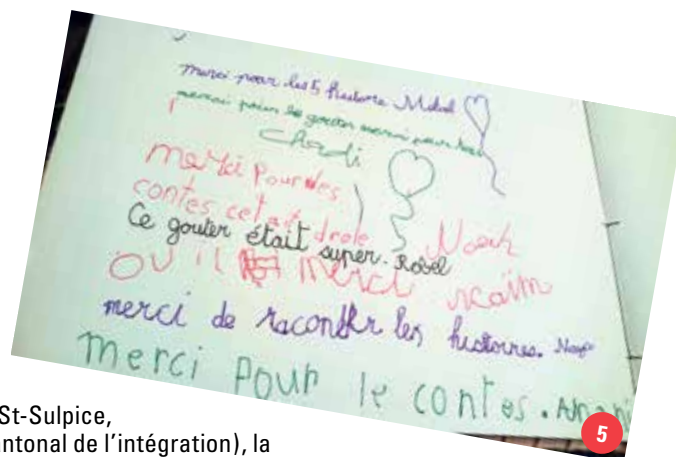 merci pour les 5 histoire Melad
merci pour le gouter merci pour
Chadi
merci Pour des
contes cet ait drole Noah
Ce gouter était super. Robel
OUIL merci naïm
merci de raconter les histoires.
merci pour le contes.
5
St-Sulpice,
antonal de l'intégration), la